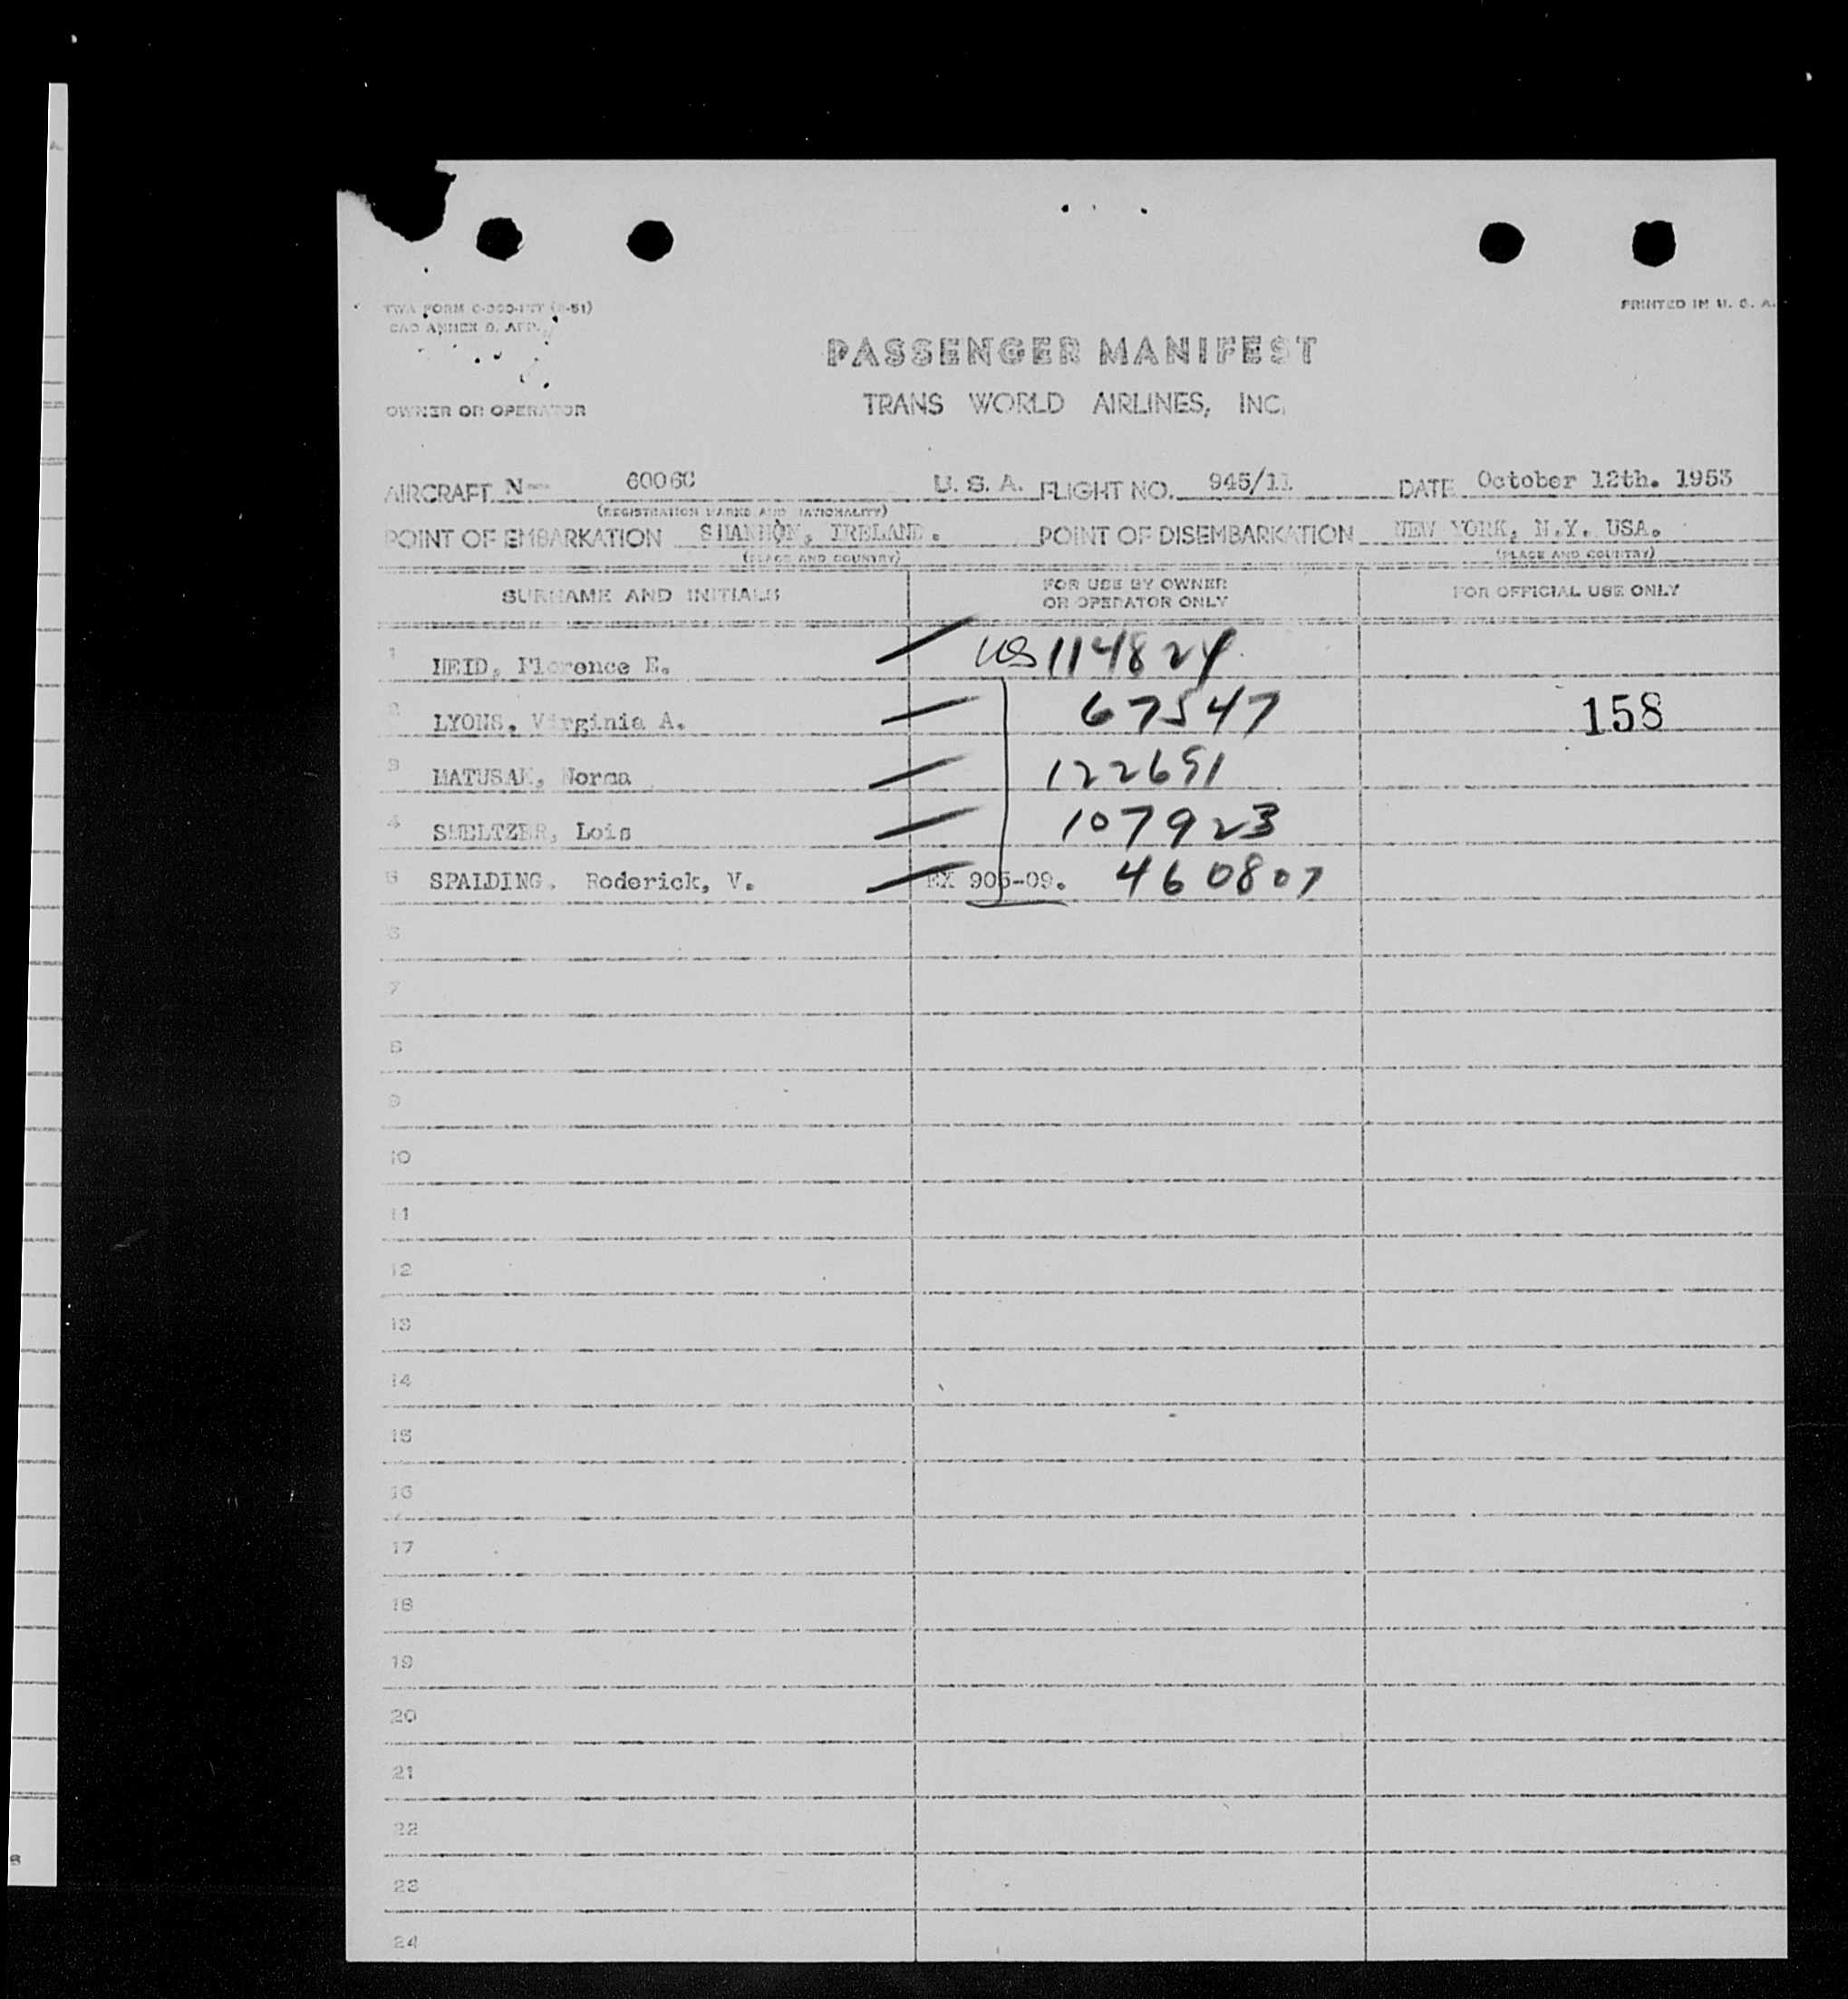 PRINTED IN U. S. A.
PASSENGER MANIFEST
OWNER OR OPERATOR
TRANS WORLD AIRLINES, INC.
AIRCRAFT N-- 6006C U. S. A. FLIGHT NO. 945/11 DATE October 12th. 1953
(REGISTRATION MARKS AND NATIONALITY)
POINT OF EMBARKATION SHANNON, IRELAND. POINT OF DISEMBARKATION NEW YORK, N.Y. USA.
(PLACE AND COUNTRY) (PLACE AND COUNTRY)
SURNAME AND INITIALS FOR USE BY OWNER OR OPERATOR ONLY FOR OFFICIAL USE ONLY
1 Florence E. US 114824
2 LYONS, Virginia A. 67547 158
3 MATUSAK, Norma 122691
4 SMELTZER, Lois 107923
5 SPALDING. Roderick, V. EX 905-09. 460807
6
7
8
9
10
11
12
13
14
15
16
17
18
19
20
21
22
23
24